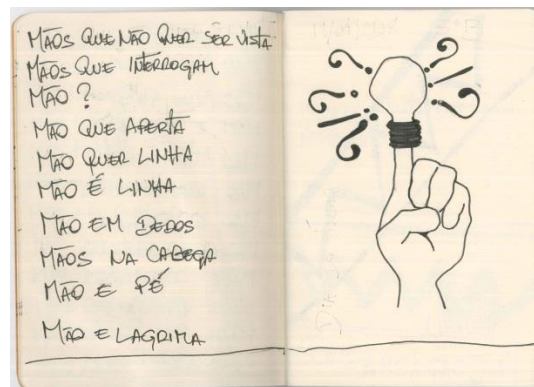 MÃOS QUE NÃO QUER SER VISTA
MÃOS QUE INTERROGAM
MÃO ?
MÃO QUE APERTA
MÃO QUER LINHA
MÃO É LINHA
MÃO EM DEDOS
MÃOS NA CABEÇA
MÃO E PÉ
MÃO E LAGRIMA